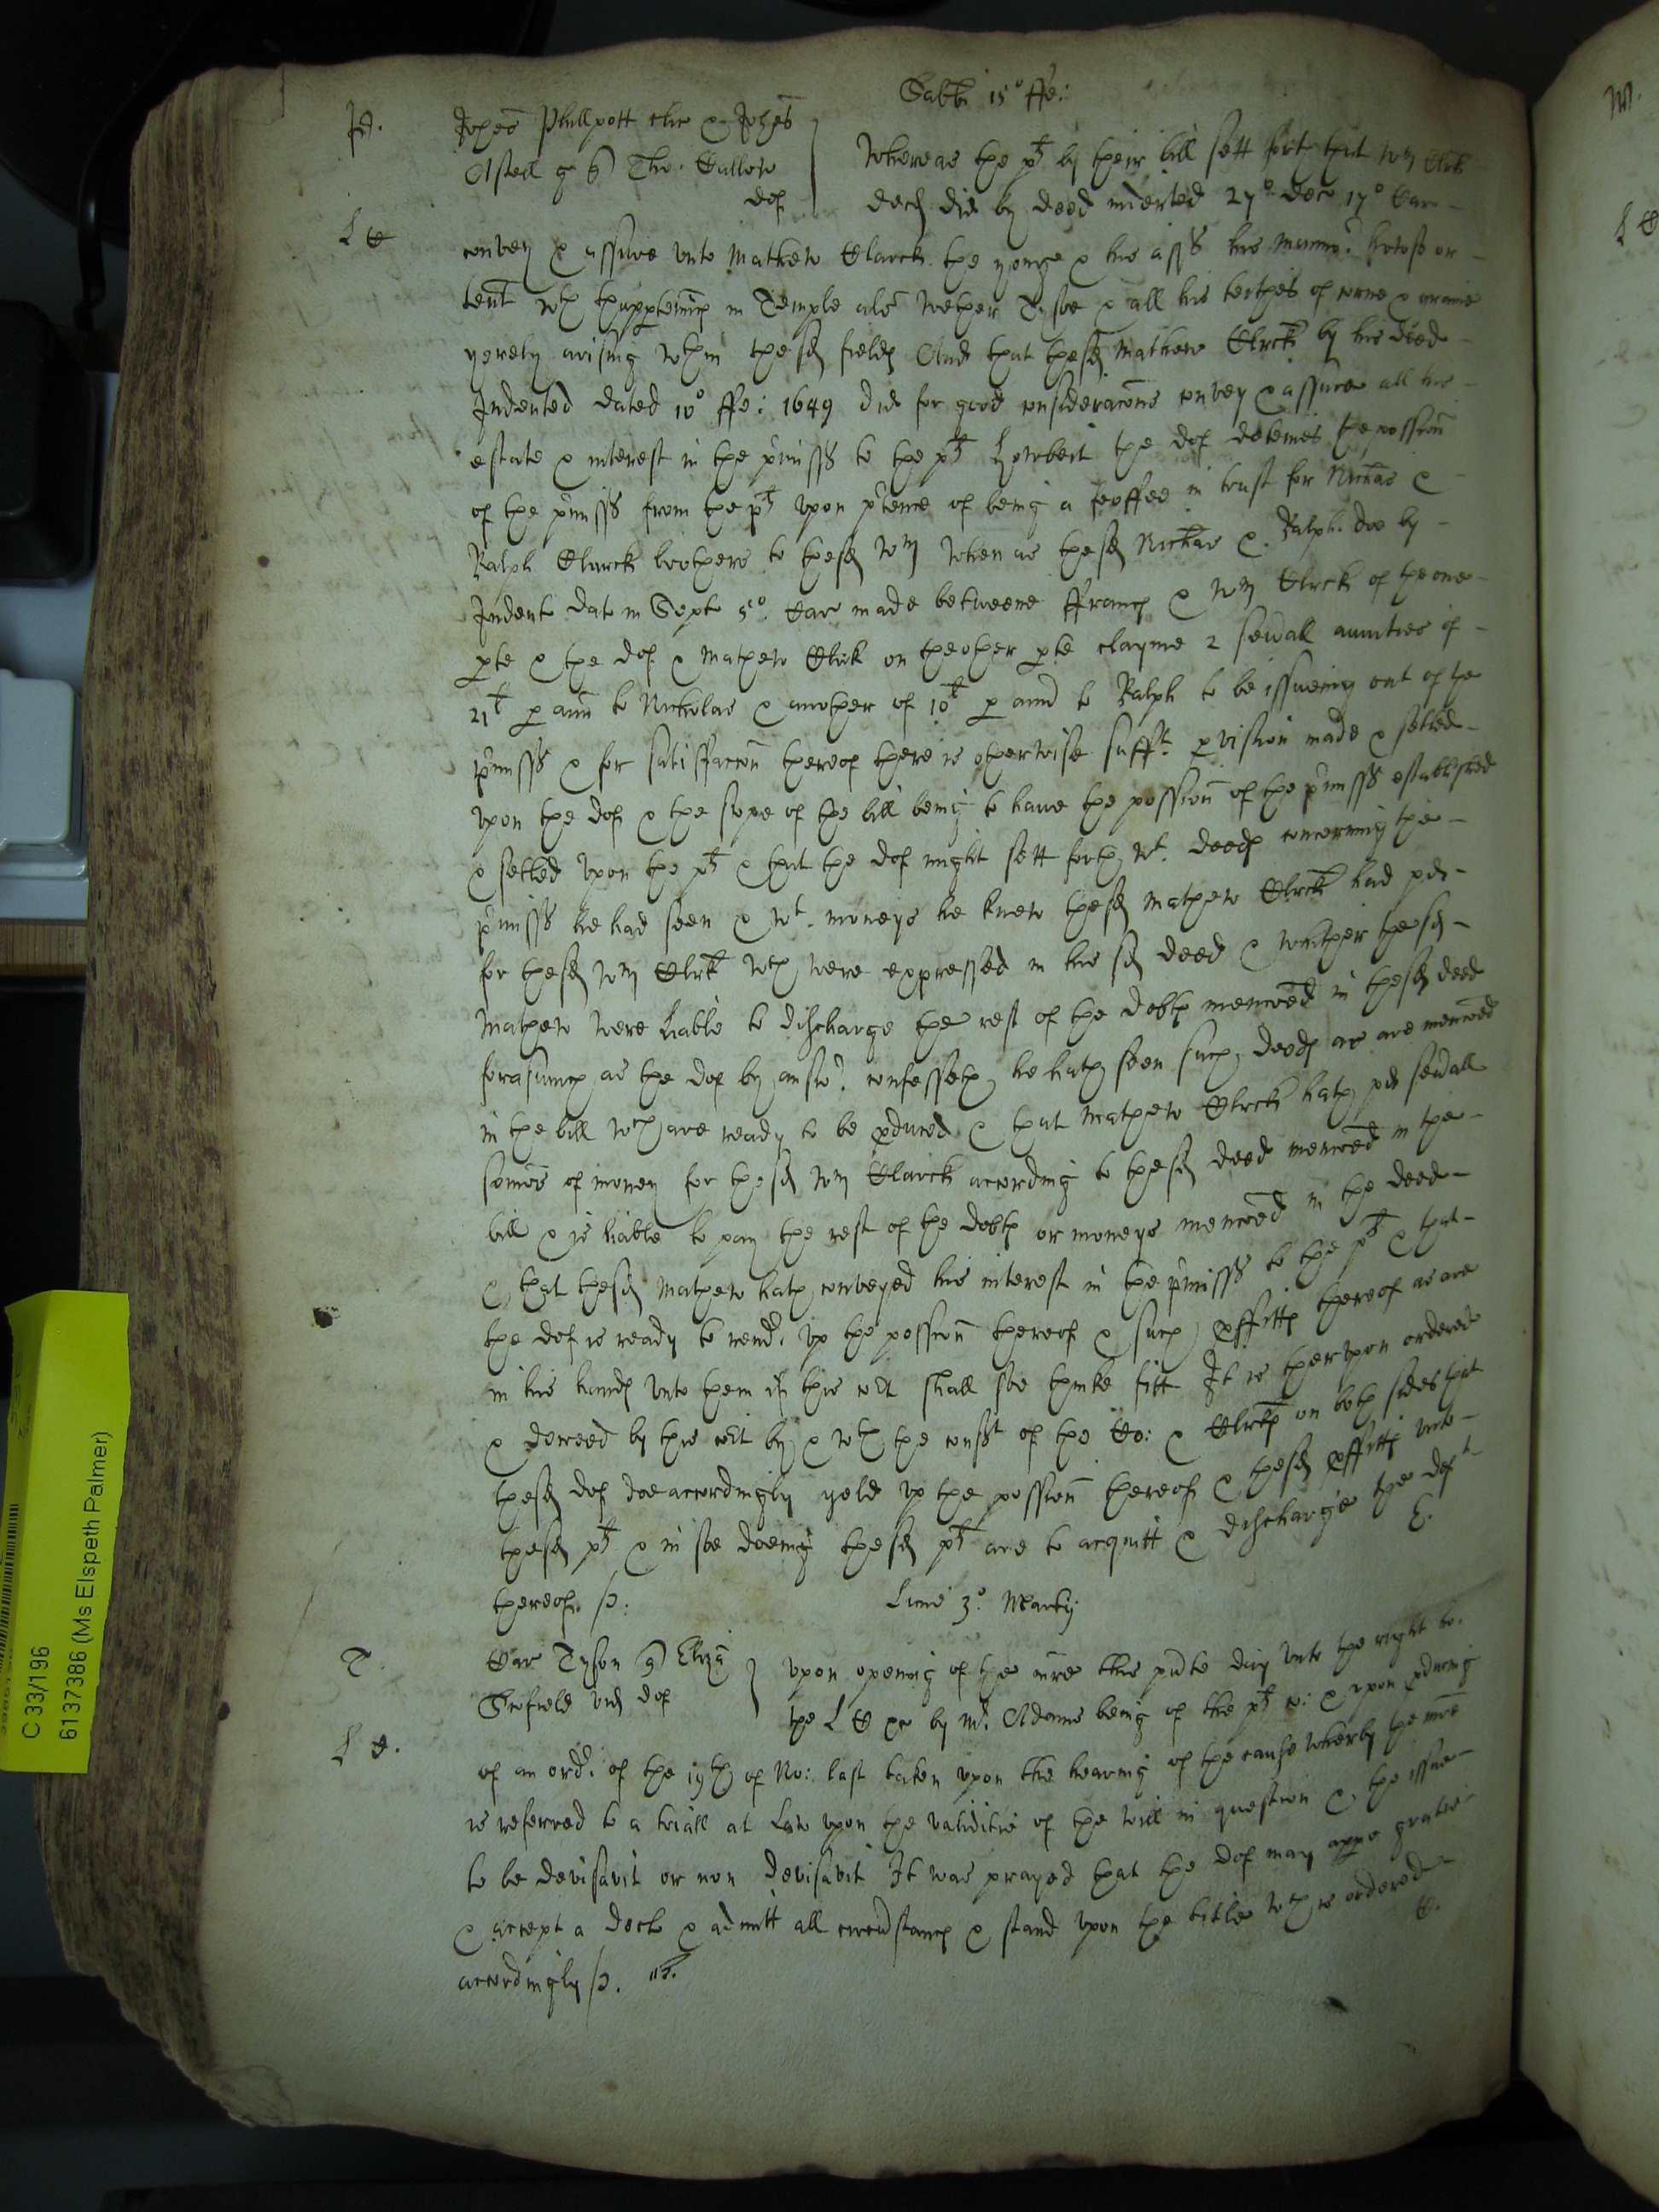 Sabbi 15° ffe:
Johes Phillpott cler & Johes
Astell g Tho: Cullow
def
Whereas the plt by their bill sett forth that Wm Clrk
decd did by deed indented 27° Dec 17° Car
L C
convey & assure unto Mathew Clarck the yonge & his asss his mannor howse or
tent wth thapptennc in Temple als Nether Tysoe & all his teithes of corne & graine
yerely arising wthin the sd fields And that the sd Mathew Clrck by his deed
Indented dated 10° ffe: 1649 did for good consideracons convey & assure all his
estate & interest in the pmisss to the plt Howbeit the def deteines the possion
of the pmisss from the plt vpon ptence of being a feoffee in trust for Nichas &
Ralph Clarck brothers to the sd Wm when as the sd Nichas & Ralph doe by
Indent dat in Sept 5° Car made betweene ffranc & Wm Clrck of the one
pte & the def & Mathew Clrk on the other pte clayme 2 sevall anuities of
21l p ann to Nicholas & another of 10l p ann to Ralph to be issueing out of the
pmisss & for satisfaccon thereof there is otherwise sufft pvision made & setled
vpon the def & the scope of the bill being to have the possion of the pmisss established
& setled vpon the plt & that the def might sett forth wt deeds concerning the
pmisss he had seen & wt moneys he knew the sd Mathew Clrck had pd
for the sd Wm Clrk wch were expressed in his sd deed & whither the sd
Mathew were liable to discharge the rest of the debts menconed in the sd deed
forasmuch as the def by answ confesseth he hath seen such deeds as are menconed
in the bill wch are ready to be pduced & that Mathew Clrck hath pd sevall
somes of money for the sd Wm Clarck according to the sd deed menconed in the
bill & is liable to pay the rest of the debts or moneys menconed in the deed
& that the sd Mathew hath conveyed his interest in the pmisss to the plt & that
the def is ready to rend vp the possion thereof & such pffitts thereof as are
in his hands vnto them if this cort shall soe thinke fitt It is therevpon ordered
& decreed by this cort by & wth the const of the Co: & Clrks on both sides that
the sd def doe accordingly yeld vp the possion thereof & the sd pffitts vnto
the sd plt & in soe doeing the sd plt are to acquitt & discharge the deft
thereof /.
Lune 3° Martij
T.
Car Tyson Eliza
Scofield vid def
vpon opening of the mre this psnte day vnto the right ho:
L C.
the L C &c by Mr Adams being of the plt co: & vpon pducing
of an ord of the 19th of No: last taken vpon the hearing of the cause wherby the mre
is referred to a triall at Law vpon the validitie of the will in question & the issue
to be devisavit or non devisavit It was prayed that the def may appe gratis
& accept a decl & admitt all circumstanc & stand vpon the title wch is ordered
accordingly /.
C 33/196
6137386 (Ms Elspeth Palmer)